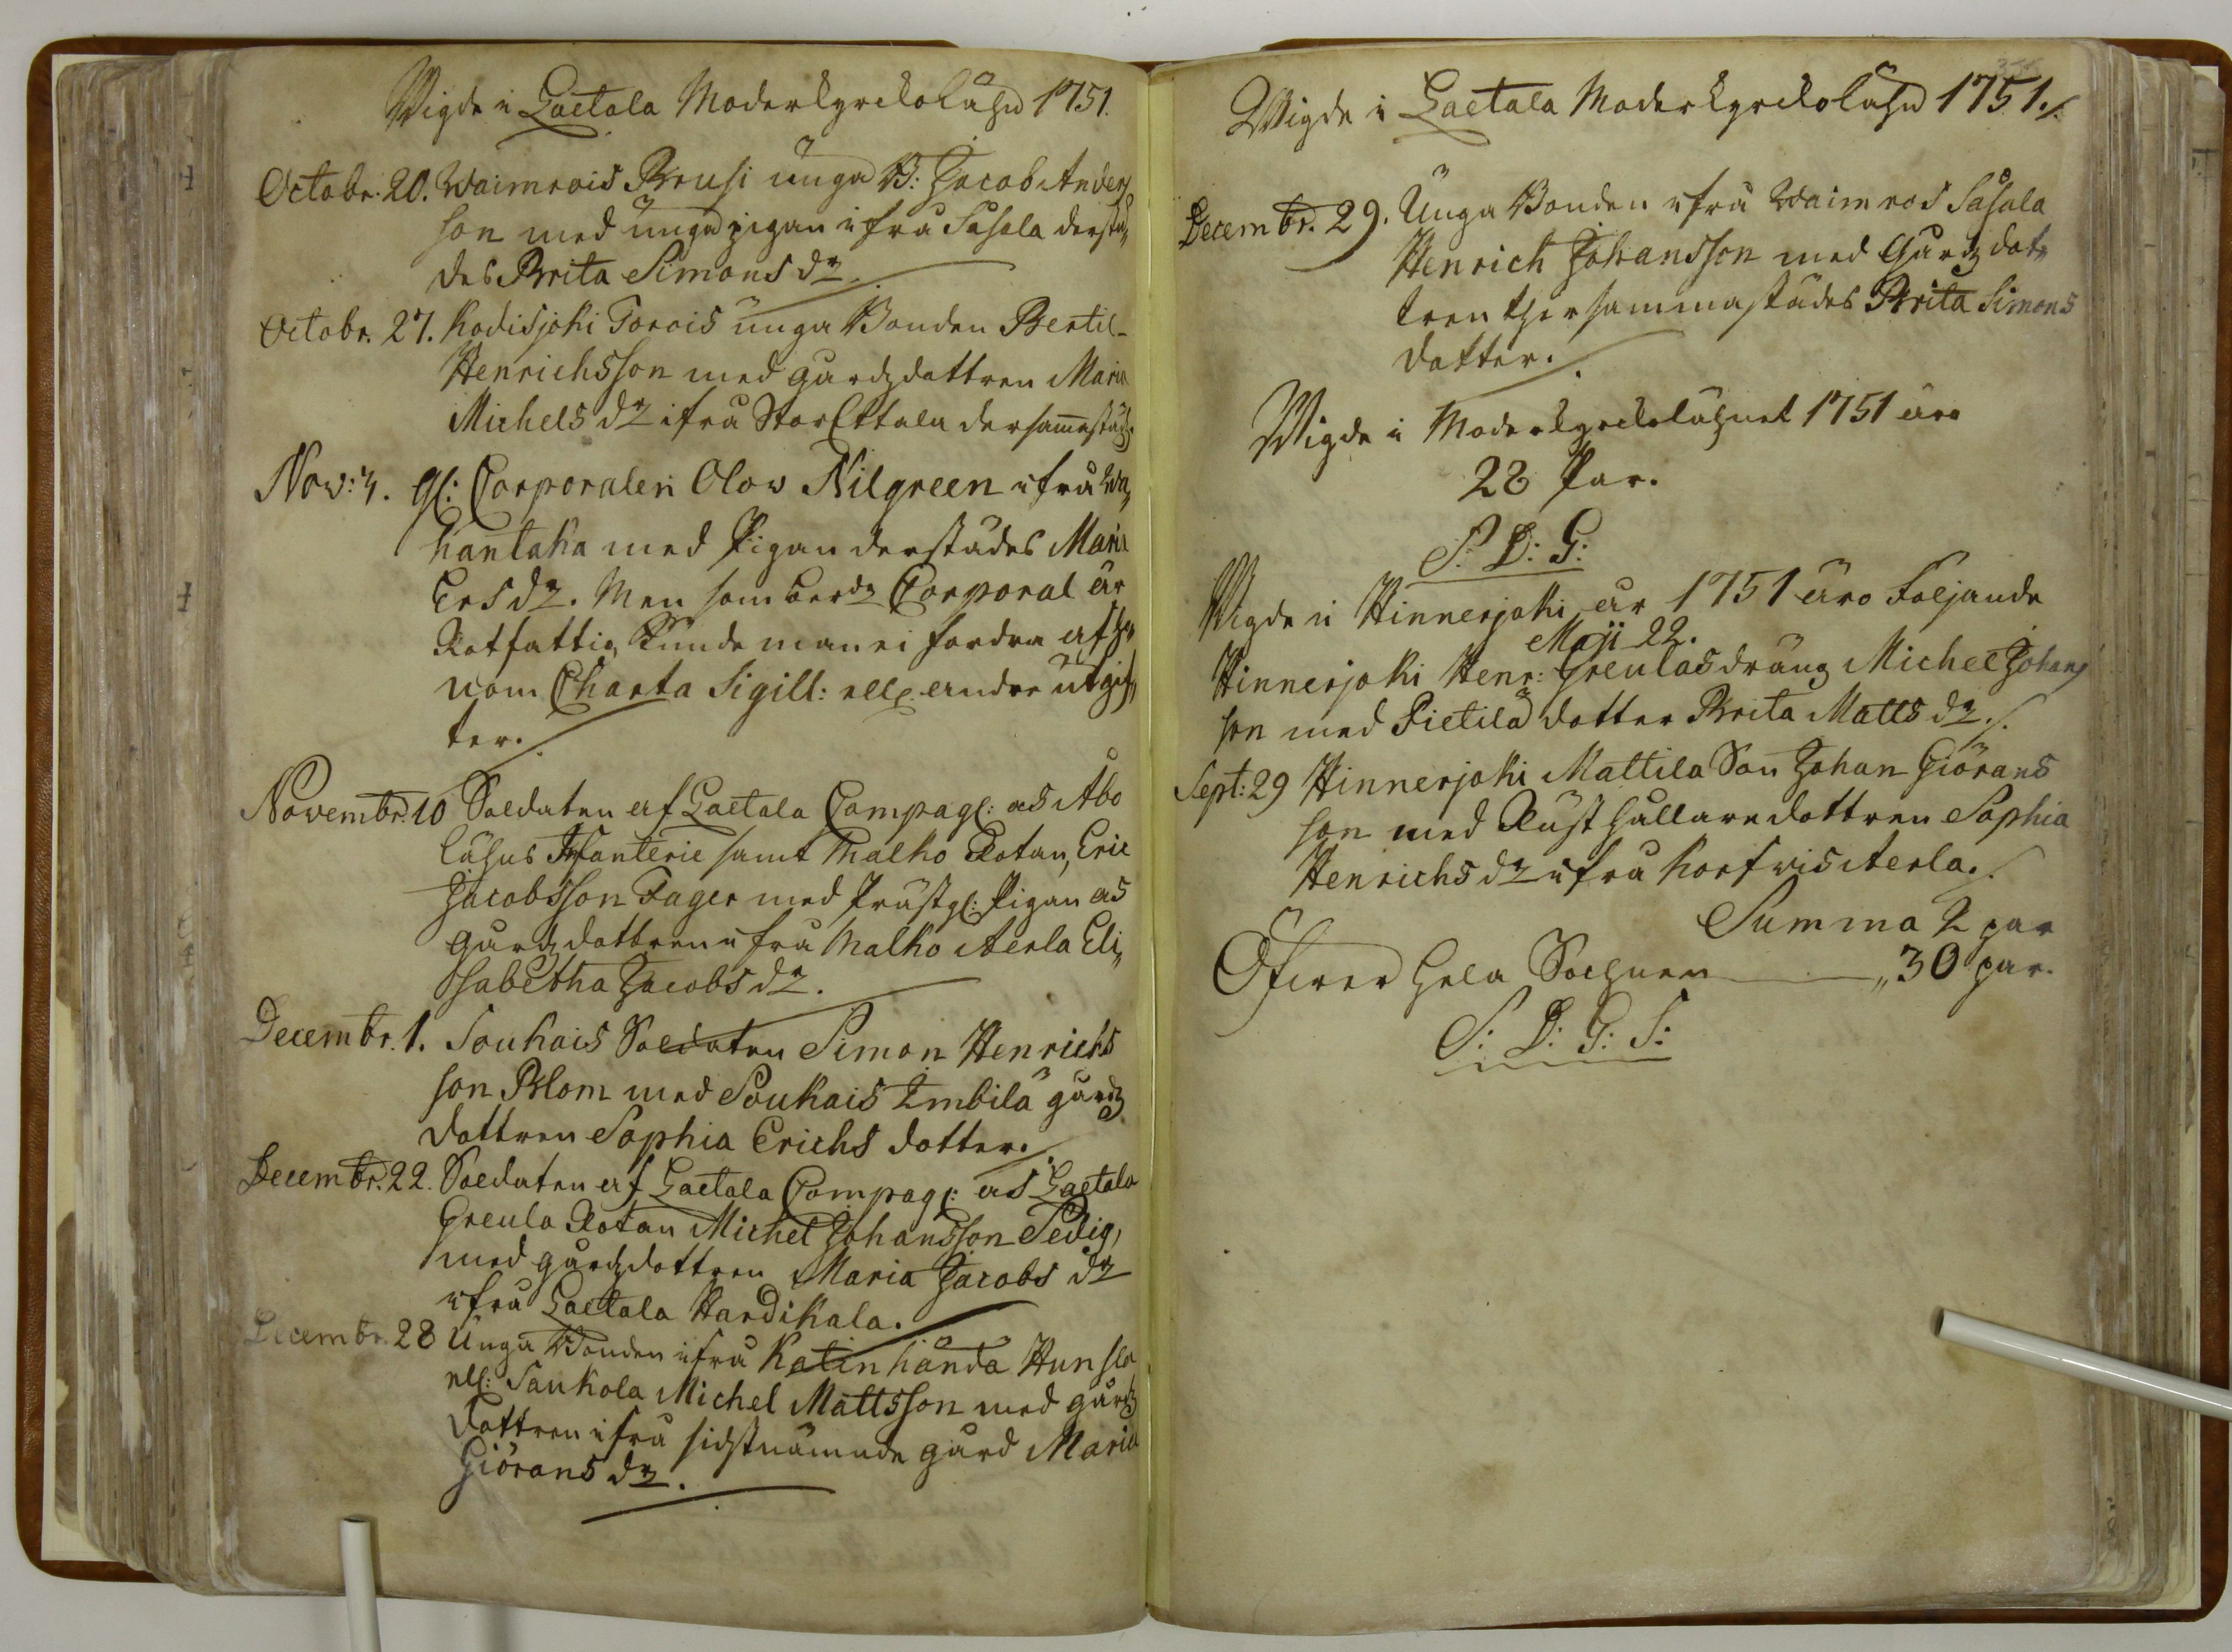 Wigde i Laetala Moderkyrckolähn 1751.
Octobr. 20. Waimrois Brusi unga B: Jacob Anders
son med unga pigan ifrå Sasala derstä„
des Brita Simons dr
Octobr. 27. Kodisjoki Torois unga Bonden Bertil
Henrichsson med gårdzdottren Maria
Michels dr ifrå StorEttala dersammastädz
Nov: 4. Gl: Corporalen Olow Nilgreen ifrå Wa„
hantaka med Pigan derstädes Maria
Ers dr. Men som berde Corporal är
Rotfattig, kunde man ei fordra af ho„
nom Charta Sigill: ell. andre utgif„
ter.
Novembr. 10 Soldaten af Laetala Compagl: as Åbo
lähns Infanterie samt Malko Rotan, Eric
Jacobsson Fager med Prästgl: Pigan as
gårdzdottren ifrå Malko Aerla Eli„
sabetha Jacobs dr.
Decembr. 1. Soukois Soldaten Simon Henrichs
son Blom med Soukais Imbila gårdz
dottren Sophia Erichs dotter.
Decembr. 22. Soldaten af Laetala Compagl: as Laetala
Greula Rotan Michel Johansson Sedig,
med gårdzdottren Maria Jacobs dr
ifrå Laetala Hardikala.
Decembr. 28 Unga Bonden ifrå Katinhända
ell: Saukola Michel Mattsson med gårdz
dottren ifrå sidstnämnde gård Maria
Giörans dr.
Wigde i Laetala Moderkyrckolähn 1751.
Decembr. 29. Unga Bonden ifrå Waimros Såsala
Henrich Johansson med Gårdzdot„
tren ther sammastädes Brita Simons
dotter.
Wigde i Moderkyrckolähnet 1751 äro
28 Par.
S: D: G:
Wigde i Hinnerjoki år 1751 äro Följande
Maji 22.
Hinnerjoki Henr: Greulas dräng Michel Johans
son med Pietilä dotter Brita Matts dr.
Sept: 29 Hinnerjoki Mattila Son Johan Giörans
son med Rusthållaredottren Sophia
Henrichs dr ifrå Korfwis Aerla.
Summa 2 par
Öfwer hela Sochnen „30 par.
S: D: G: S: